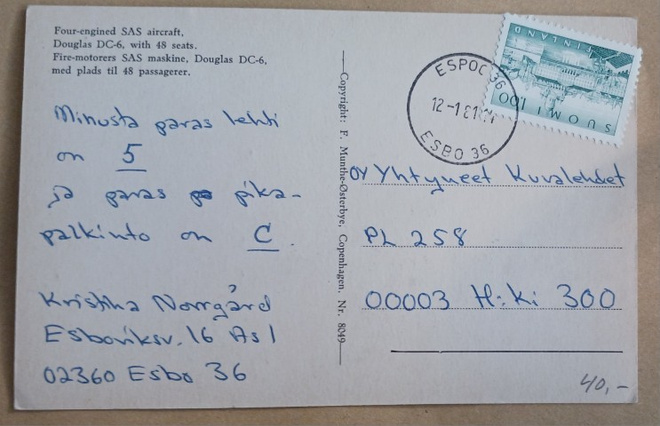 Four-engined SAS aircraft,
Douglas DC-6, with 48 seats.
Fire-motorers SAS maskine, Douglas DC-6,
med plads til 48 passagerer.
Minusta paras lehti
on 5
ja paras pika-
palkinto on C.
Kristina Norrgård
Esboviksv. 16 As 1
02360 Esbo 36
Copyright: F. Munthe-Østerbye, Copenhagen. Nr. 8049
ESPOO 36
12-1 81
ESBO 36
SUOMI 100
FINLAND
OY Yhtyneet Kuvalehdet
PL 258
00003 H:ki 300
40,-